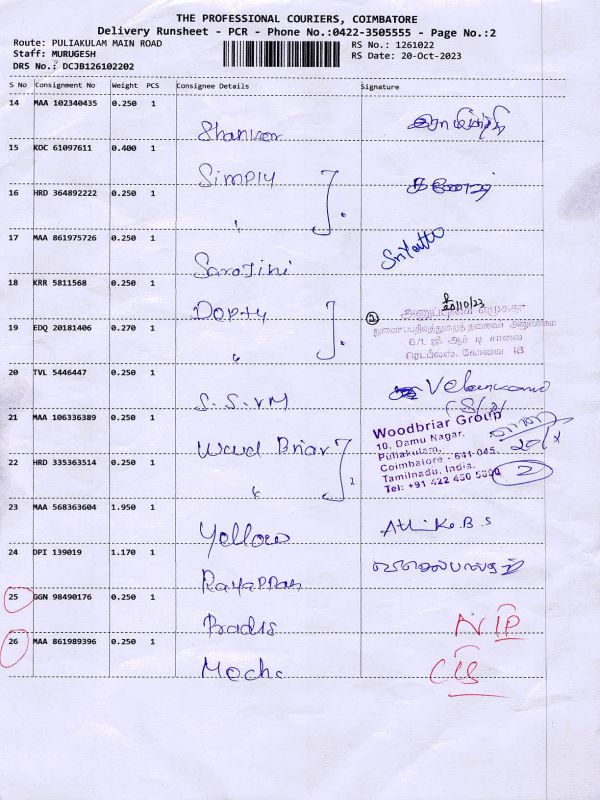 THE PROFESSIONAL COURIERS, COIMBATORE
Delivery Runsheet - PCR - Phone No.:0422-3505555 - Page No.:2
Route: PULIAKULAM MAIN ROAD RS No.: 1261022
Staff: MURUGESH RS Date: 20-Oct-2023
DRS No.: DCJB126102202
S No Consignment No Weight PCS Consignee Details Signature
14 MAA 102340435 0.250 1
Shankar
15 KDC 61097611 0.400 1
Simply
16 HRD 364892222 0.250 1
17 MAA 861975726 0.250 1
Sarojini
18 KRR 5811568 0.250 1
20/10/23
Dopty
2
அனுப்புகை எழுத்தர்
துணைப்பதிவுத்துறைத் தலைவர் அலுவலகம்
19 EDQ 20181406 0.270 1
6/1 ஜி ஆர் டி சாலை
ரெட்பீல்ஸ், கோவை 18
20 TVL 5446447 0.250 1
S.S.VM
21 MAA 106336389 0.250 1
Woodbriar Group
10, Damu Nagar,
Puliakulam,
Wood Briar
Coimbatore - 641 045.
22 HRD 335363514 0.250 1
Tamilnadu, India.
Tel: +91 422 430 5800
2
23 MAA 568363604 1.950 1
Yellow Athike.B.S
24 DPI 139019 1.170 1
Rayappan
25 GGN 98490176 0.250 1
26 MAA 861989396 0.250 1